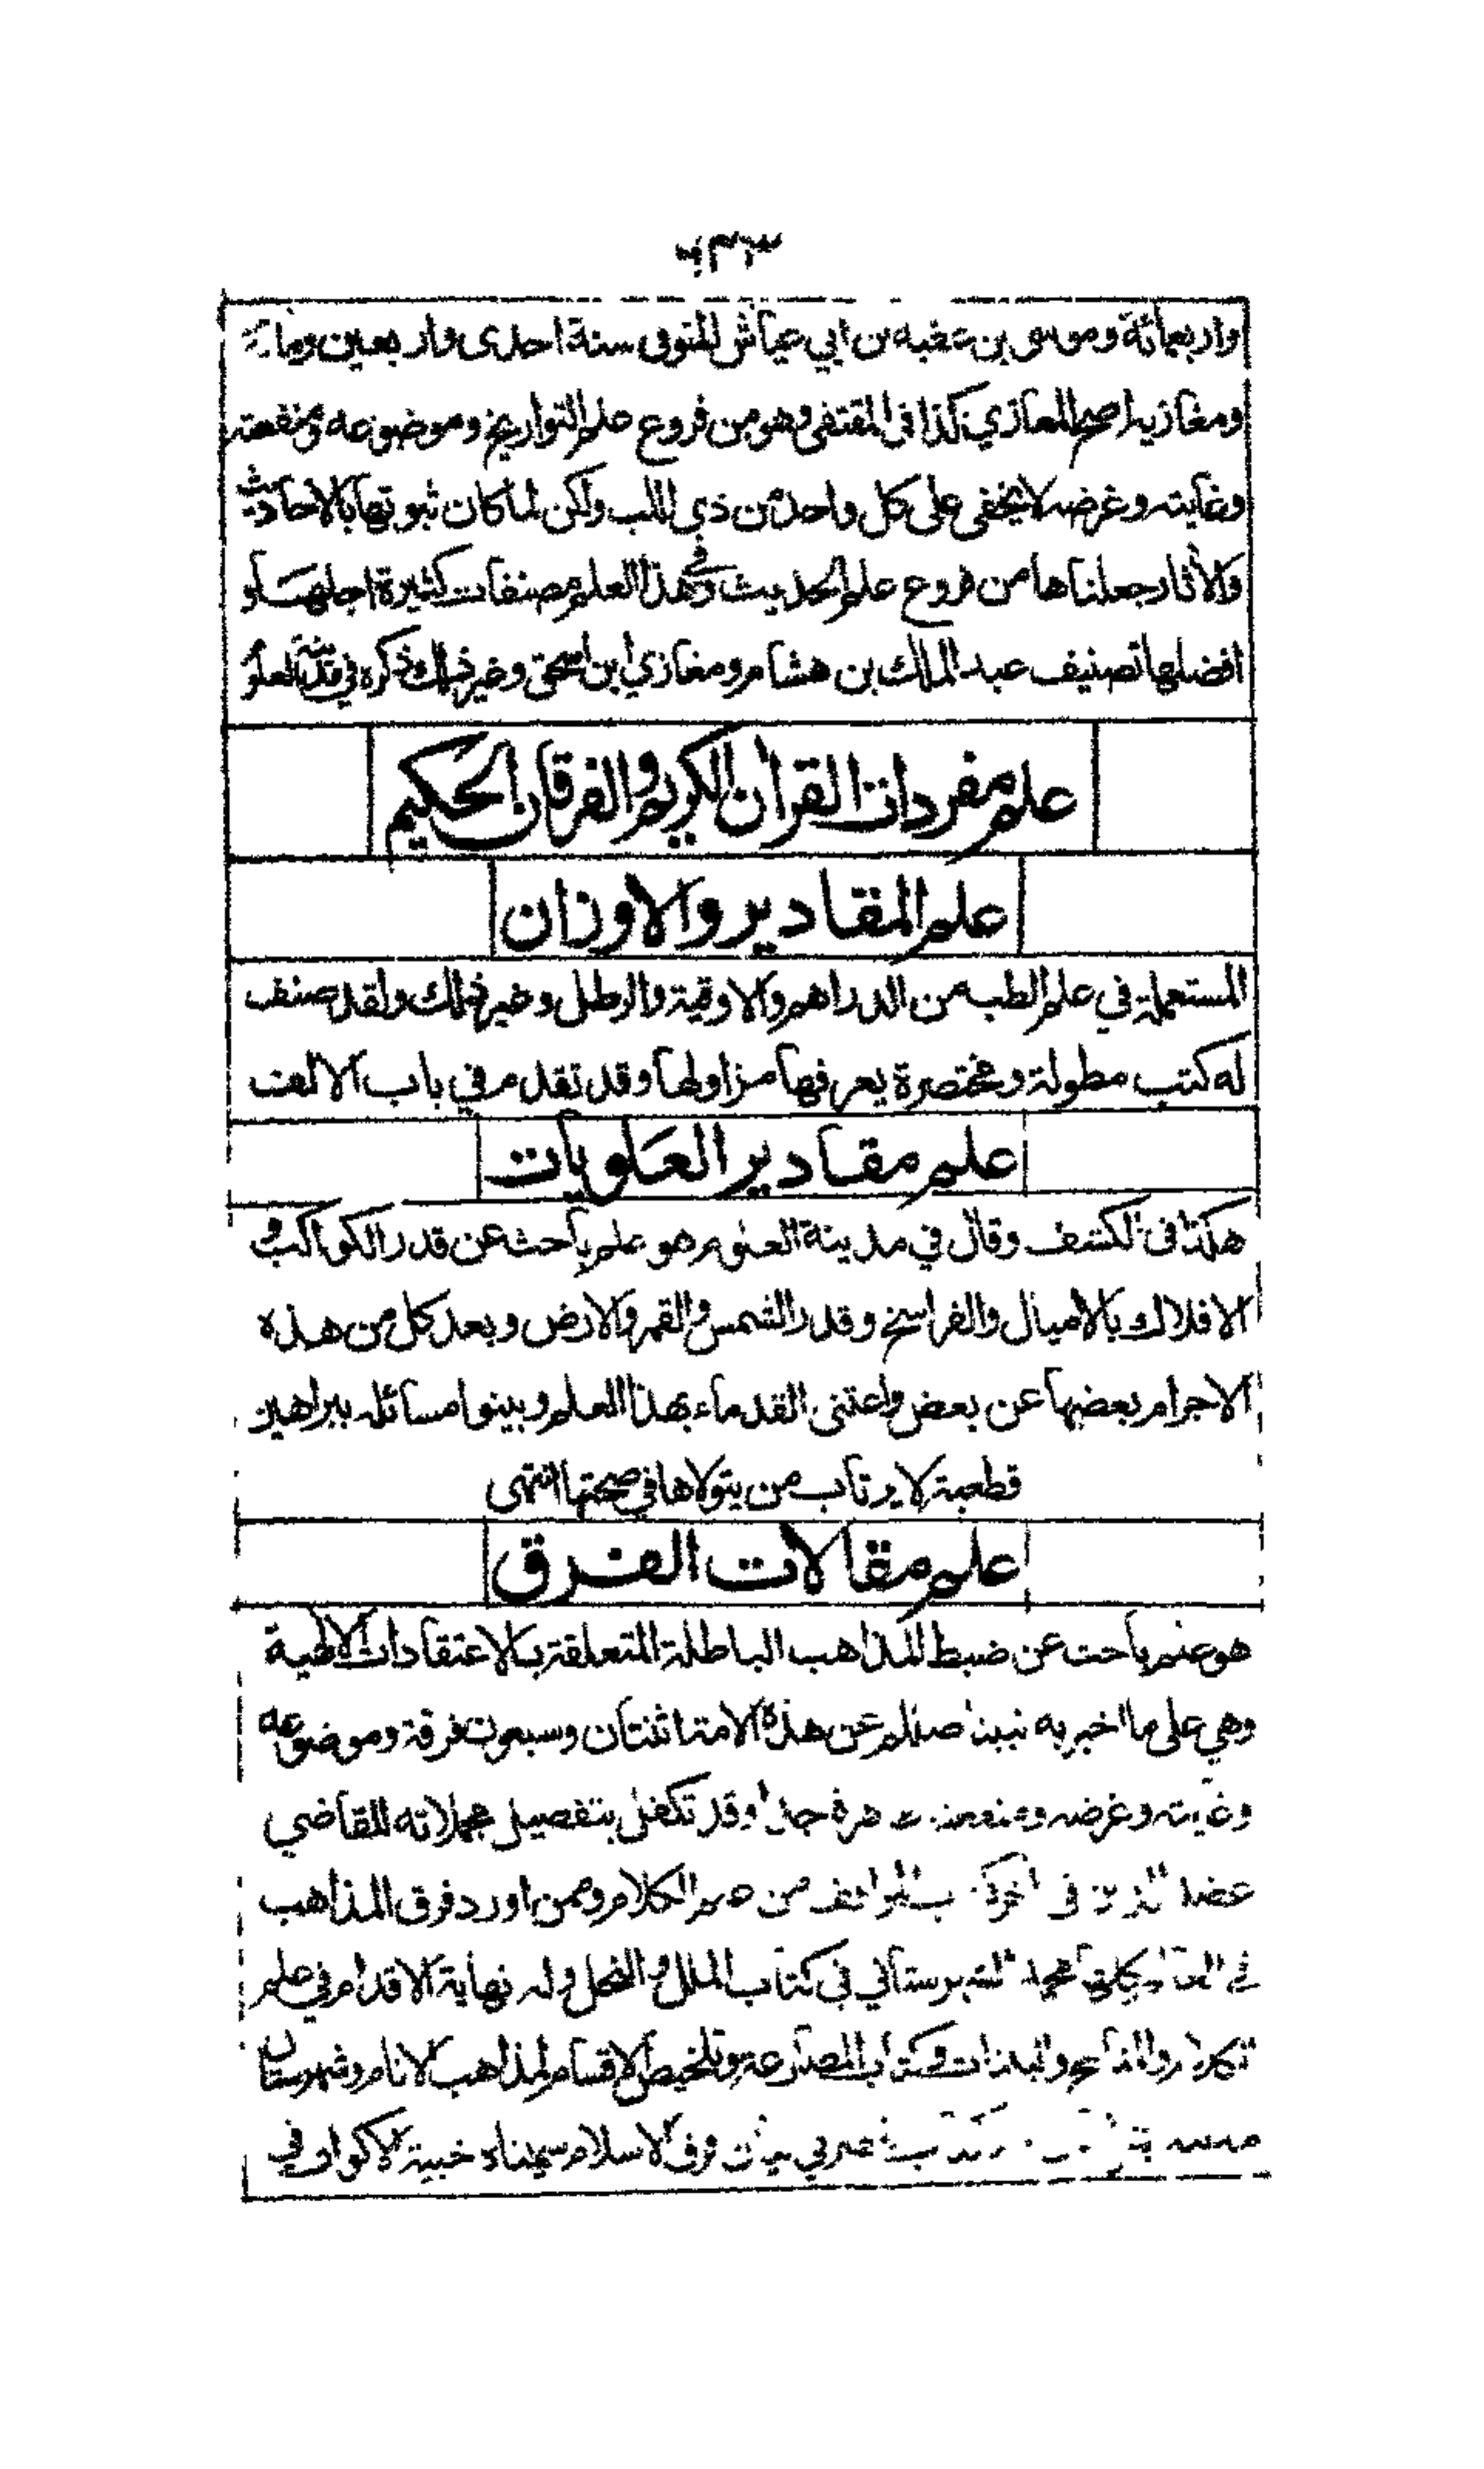 واربعمائة وموسى بن عقبه بن ابي عياش المتوفى سنة احدى واربعين ومائة
ومغازيه اصح المغازي كذا في المقتفى وهو من فروع علم التواريخ وموضوعه ومنفعته
وغايته وغرضه لا يخفى على كل واحد من ذي اللب ولكن لما كان ثبوتها بالاحاديث
والاثار جعلناها من فروع علم الحديث وفي هذا العلم مصنفات كثيرة اجلها و
افضلها تصنيف عبد الملك بن هشام ومغازي ابن اسحق وغير ذلك ذكره في مدينة العلوم
علم مفردات القران الكريم والفرقان الحكيم
علم المقادير والاوزان
المستعملة في علم الطب من الدراهم والاوقية والرطل وغير ذلك ولقد صنف
له كتب مطولة ومختصرة يعرفها مزاولها وقد تقدم في باب الالف
علم مقادير العلويات
هكذا في الكشف وقال في مدينة العلوم هو علم باحث عن قدر الكواكب و
الافلاك بالاميال والفراسخ وقدر الشمس والقمر والارض وبعد كل من هذه
الاجرام بعضها عن بعض واعتنى القدماء بهذا العلم وبينوا مسائله ببراهين
قطعية لا يرتاب من يتولاها في صحتها انتهى
علم مقالات الفرق
هو علم باحث عن ضبط المذاهب الباطلة المتعلقة بالاعتقادات الالهية
وهي على ما اخبر به نبينا صللم عن هذة الامة اثنتان وسبعون فرقة وموضوعه
وغايته وغرضه ومنفعته ظاهرة جدا وقد تكفل بتفصيل مجملاته القاضي
عضد الدين في اخر كتاب المواقف من علم الكلام وممن اورد فرق المذاهب
في العالم كلها محمد الشهرستاني في كتاب الملل والنحل وله نهاية الاقدام في علم
الكلام والمناهج والبينات وكتاب المصارعة وتلخيص الاقسام لمذاهب الانام وشهرستان
مدينة في بيان فرق الاسلام سميناه خبيئة الاكوان في